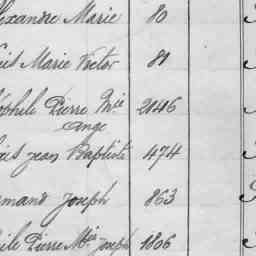 lexandre Marie 80
Marie Victor 81
ophile Pierre Mie 2046
Ange
Jean Baptiste 474
rmand Joseph 863
ile Pierre Mie Joseph 1806